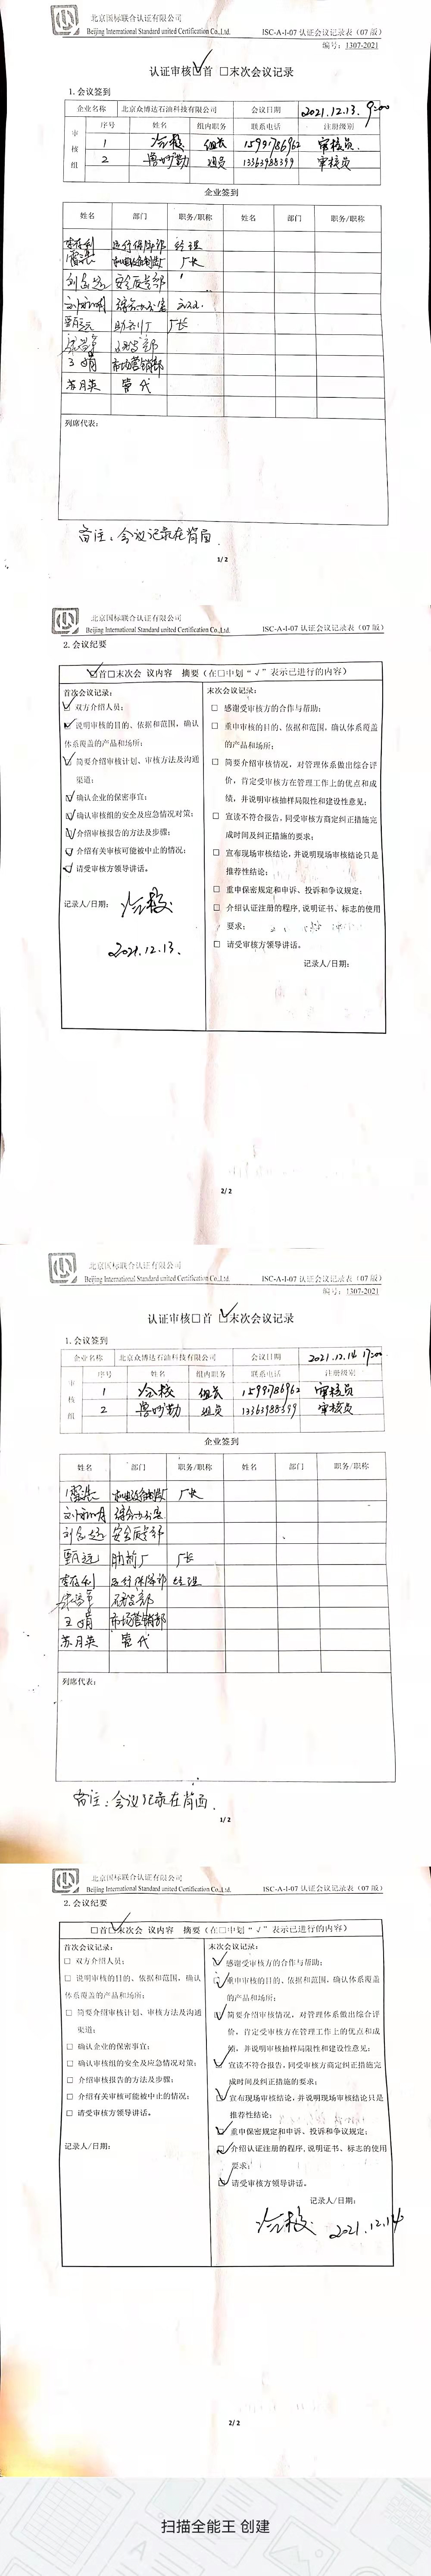 北京国标联合认证有限公司
Beijing International Standard united Certification Co.,Ltd. ISC-A-I-07 认证会议记录表（07 版）
编号：1307-2021
认证审核☑首 □末次会议记录
1. 会议签到
企业名称 北京众博达石油科技有限公司 会议日期 2021.12.13. 9:00
审核组 序号 姓名 组内职务 联系电话 注册级别
1 冷校 组长 15991786962 审核员.
2 鲁妙勤 组员 13363988399 审核员
企业签到
姓名 部门 职务/职称 姓名 部门 职务/职称
李在利 运行保障部 经理
厂长
安全质量部
综合办公室
甄远 助剂厂 厂长
研发部
王娟 市场营销部
苏月英 管代
列席代表：
备注：会议记录在背面.
1/ 2
北京国标联合认证有限公司
Beijing International Standard united Certification Co.,Ltd. ISC-A-I-07 认证会议记录表（07 版）
2. 会议纪要
☑首□末次会 议内容 摘要（在□中划“√”表示已进行的内容）
首次会议记录：
☑ 双方介绍人员；
☑ 说明审核的目的、依据和范围，确认
体系覆盖的产品和场所；
☑ 简要介绍审核计划、审核方法及沟通
渠道；
☑ 确认企业的保密事宜；
☑ 确认审核组的安全及应急情况对策；
☑ 介绍审核报告的方法及步骤；
☑ 介绍有关审核可能被中止的情况；
☑ 请受审核方领导讲话。
记录人/日期： 冷校
2021.12.13.
末次会议记录：
□ 感谢受审核方的合作与帮助；
□ 重申审核的目的、依据和范围、确认体系覆盖
的产品和场所；
□ 简要介绍审核情况，对管理体系做出综合评
价，肯定受审核方在管理工作上的优点和成
绩，并说明审核抽样局限性和建设性意见；
□ 宣读不符合报告，同受审核方商定纠正措施完
成时间及纠正措施的要求；
□ 宣布现场审核结论，并说明现场审核结论只是
推荐性结论；
□ 重申保密规定和申诉、投诉和争议规定；
□ 介绍认证注册的程序，说明证书、标志的使用
要求；
□ 请受审核方领导讲话。
记录人/日期：
2/ 2
北京国标联合认证有限公司
Beijing International Standard united Certification Co.,Ltd. ISC-A-I-07 认证会议记录表（07 版）
编号：1307-2021
认证审核□首 ☑末次会议记录
1. 会议签到
企业名称 北京众博达石油科技有限公司 会议日期 2021.12.14 17:00
审核组 序号 姓名 组内职务 联系电话 注册级别
1 冷校 组长 15991786962 审核员
2 鲁妙勤 组员 13363988399 审核员
企业签到
姓名 部门 职务/职称 姓名 部门 职务/职称
厂长
综合办公室
安全质量部
甄远 助剂厂 厂长
李在利 运行保障部 经理
研发部
王娟 市场营销部
苏月英 管代
列席代表：
备注：会议记录在背面.
1/ 2
北京国标联合认证有限公司
Beijing International Standard united Certification Co.,Ltd. ISC-A-I-07 认证会议记录表（07 版）
2. 会议纪要
□首☑末次会 议内容 摘要（在□中划“√”表示已进行的内容）
首次会议记录：
□ 双方介绍人员；
□ 说明审核的目的、依据和范围，确认
体系覆盖的产品和场所；
□ 简要介绍审核计划、审核方法及沟通
渠道；
□ 确认企业的保密事宜；
□ 确认审核组的安全及应急情况对策；
□ 介绍审核报告的方法及步骤；
□ 介绍有关审核可能被中止的情况；
□ 请受审核方领导讲话。
记录人/日期：
末次会议记录：
☑ 感谢受审核方的合作与帮助；
☑ 重申审核的目的、依据和范围、确认体系覆盖
的产品和场所；
☑ 简要介绍审核情况，对管理体系做出综合评
价，肯定受审核方在管理工作上的优点和成
绩，并说明审核抽样局限性和建设性意见；
☑ 宣读不符合报告，同受审核方商定纠正措施完
成时间及纠正措施的要求；
☑ 宣布现场审核结论，并说明现场审核结论只是
推荐性结论；
☑ 重申保密规定和申诉、投诉和争议规定；
☑ 介绍认证注册的程序，说明证书、标志的使用
要求；
☑ 请受审核方领导讲话。
记录人/日期：
冷校 2021.12.14
2/ 2
扫描全能王 创建